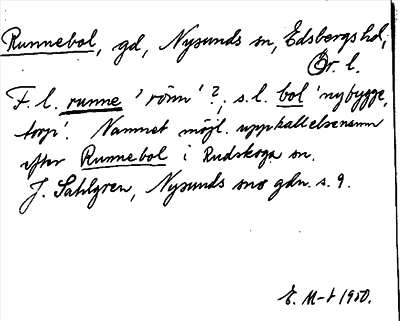 Runnebol, gd, Nysunds sn, Edsbergs hd,
Ör. l.
F. l. runne 'rönn'?; s.l. bol 'nybygge,
torp'. Namnet möjl. uppkallelsenamn
efter Runnebol i Rudskoga sn.
J. Sahlgren, Nysunds sns gdn. s. 9.
E. M-t 1950.